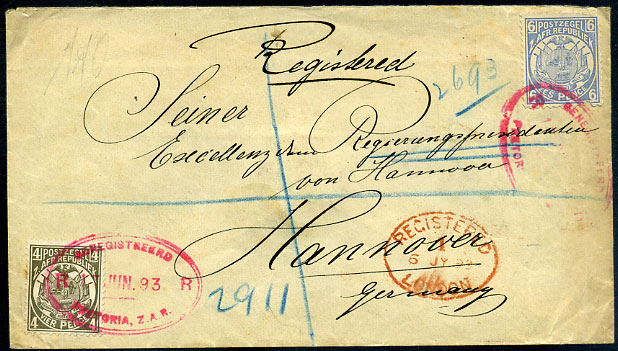 6 POSTZEGEL 6
Z. AFR. REPUBLIEK
6 ZES PENCE 6
Registered
2693
Seiner
Excellenz dem Regierungspräsidenten
von Hannover
REGISTERED
6 JY 93
LONDON
Hannover
Germany
4 POSTZEGEL 4
Z. AFR. REPUBLIEK
4 VIER PENCE 4
GEREGISTREERD
R JUN. 93. R
PRETORIA, Z.A.R.
2911